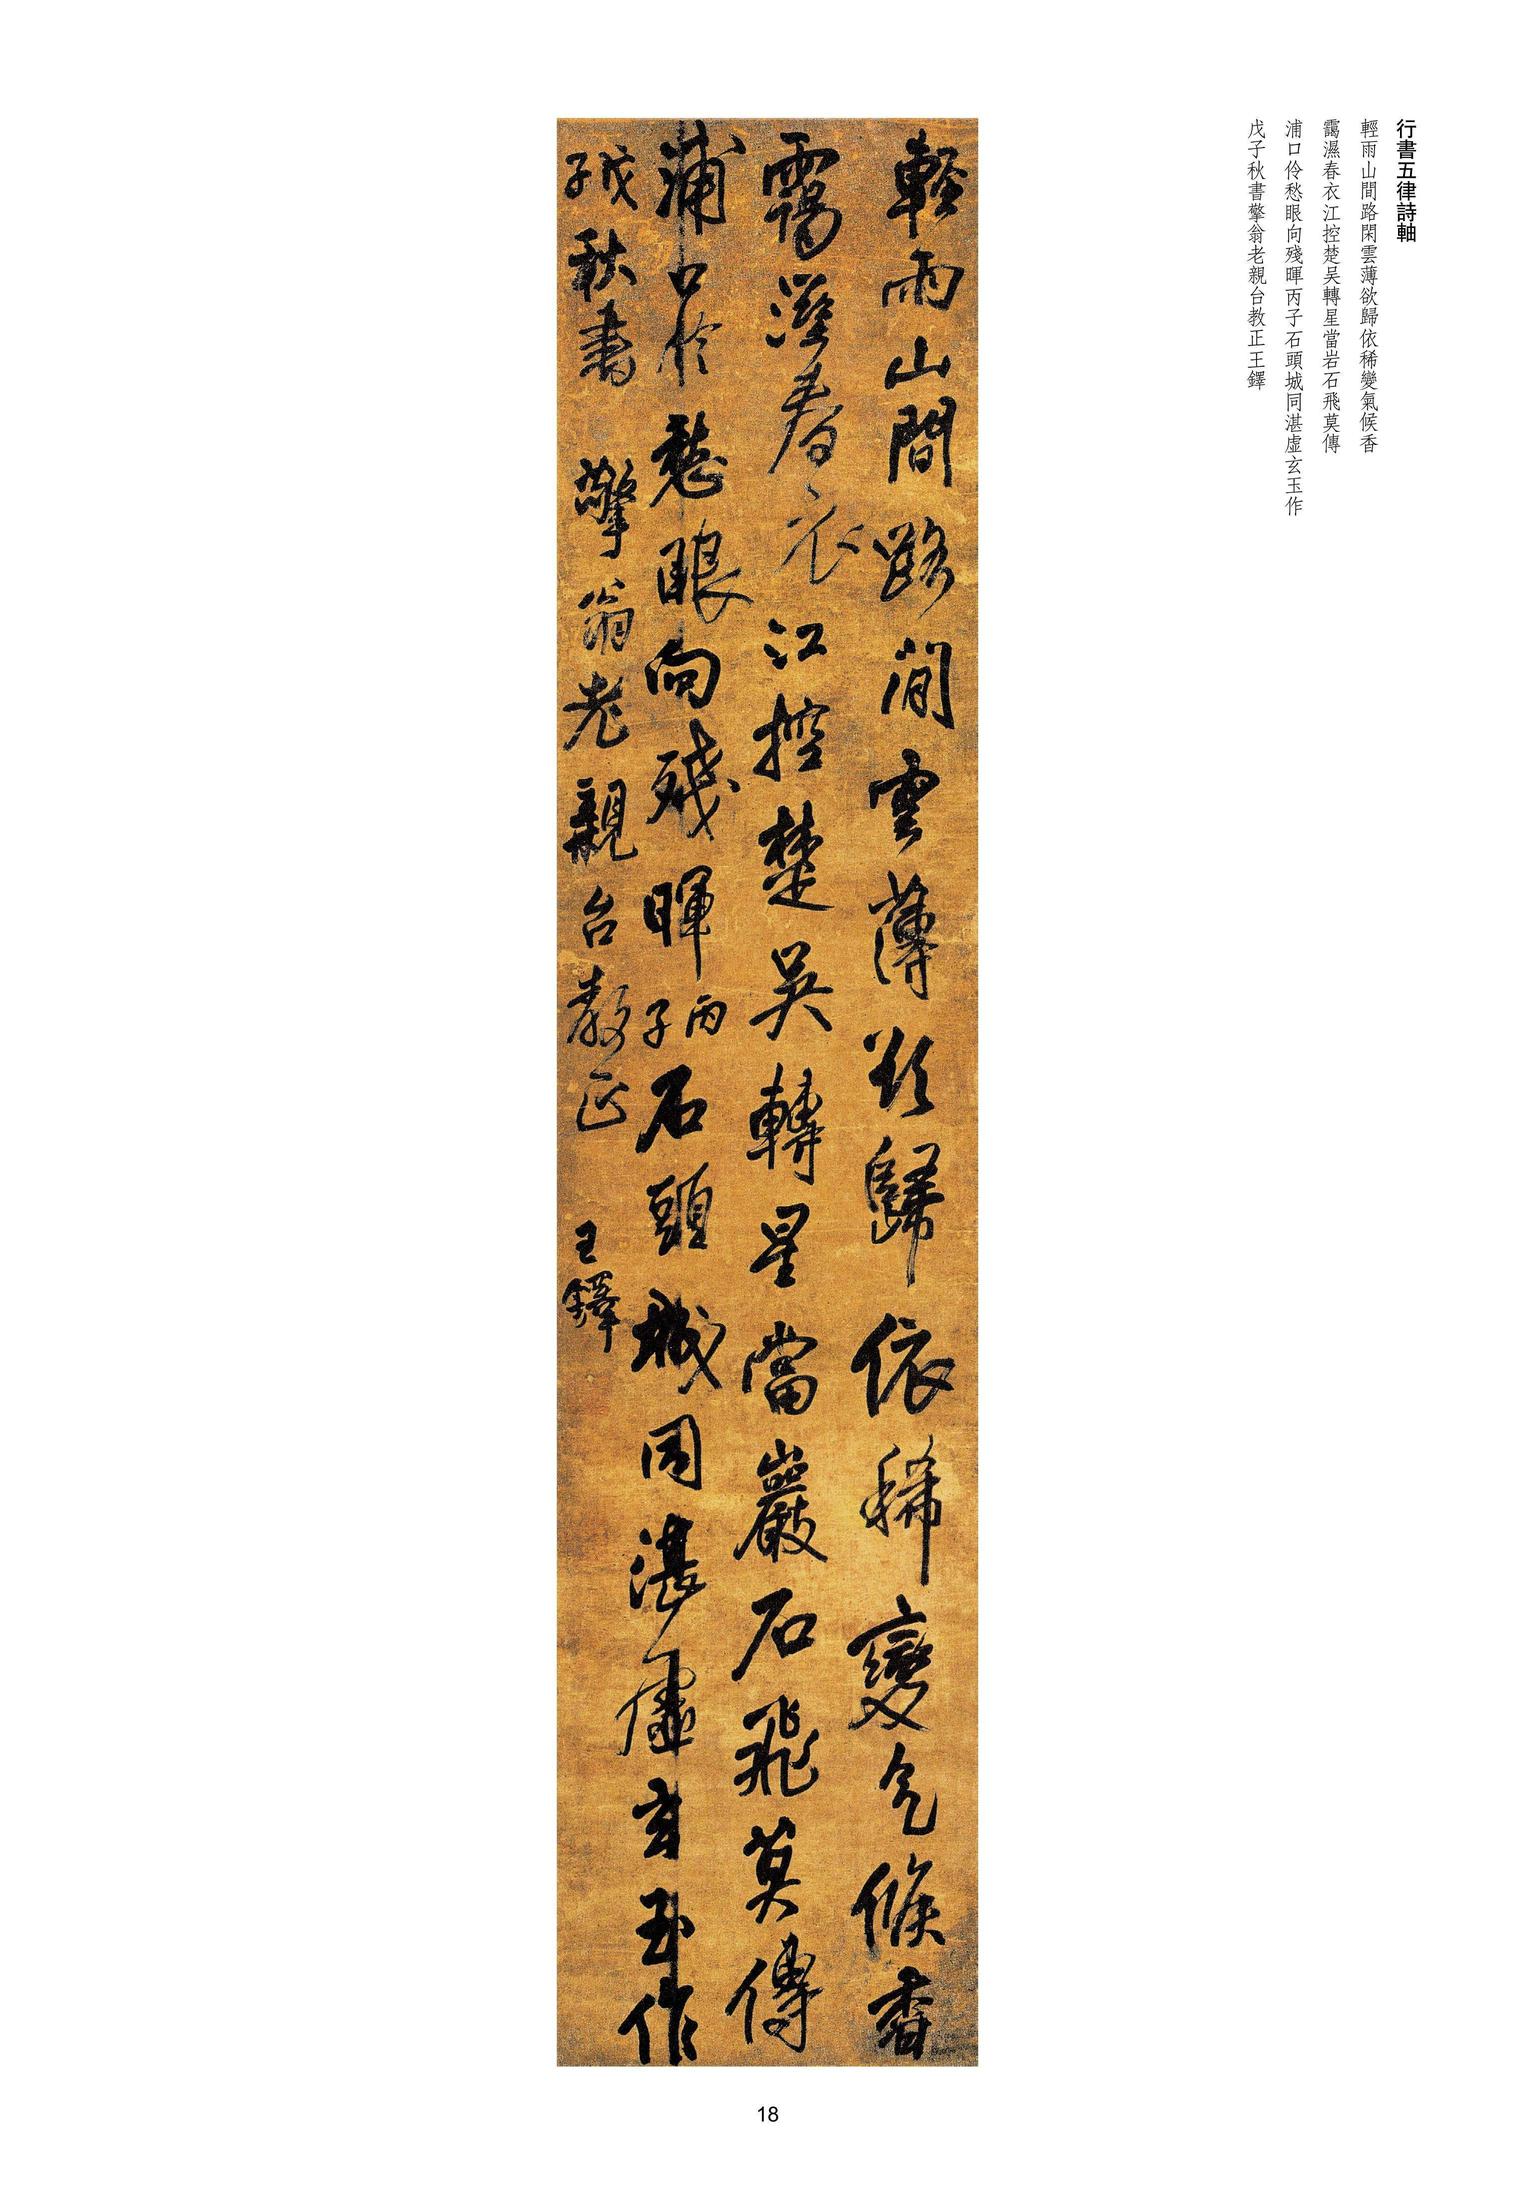 行書五律詩軸
輕雨山間路閑雲薄欲歸依稀變氣候香
靄濕春衣江控楚吴轉星當岩石飛莫傳
浦口伶愁眼向殘暉丙子石頭城同湛虛玄玉作
戊子秋書擎翁老親台教正王鐸
輕雨山間路閒雲薄欲歸依稀變氣候香
靄溼春衣江控楚吳轉星當巖石飛莫傳
浦口伶愁眼向殘暉丙子石頭城同湛虛玄玉作
戊子秋書擎翁老親台教正王鐸
18